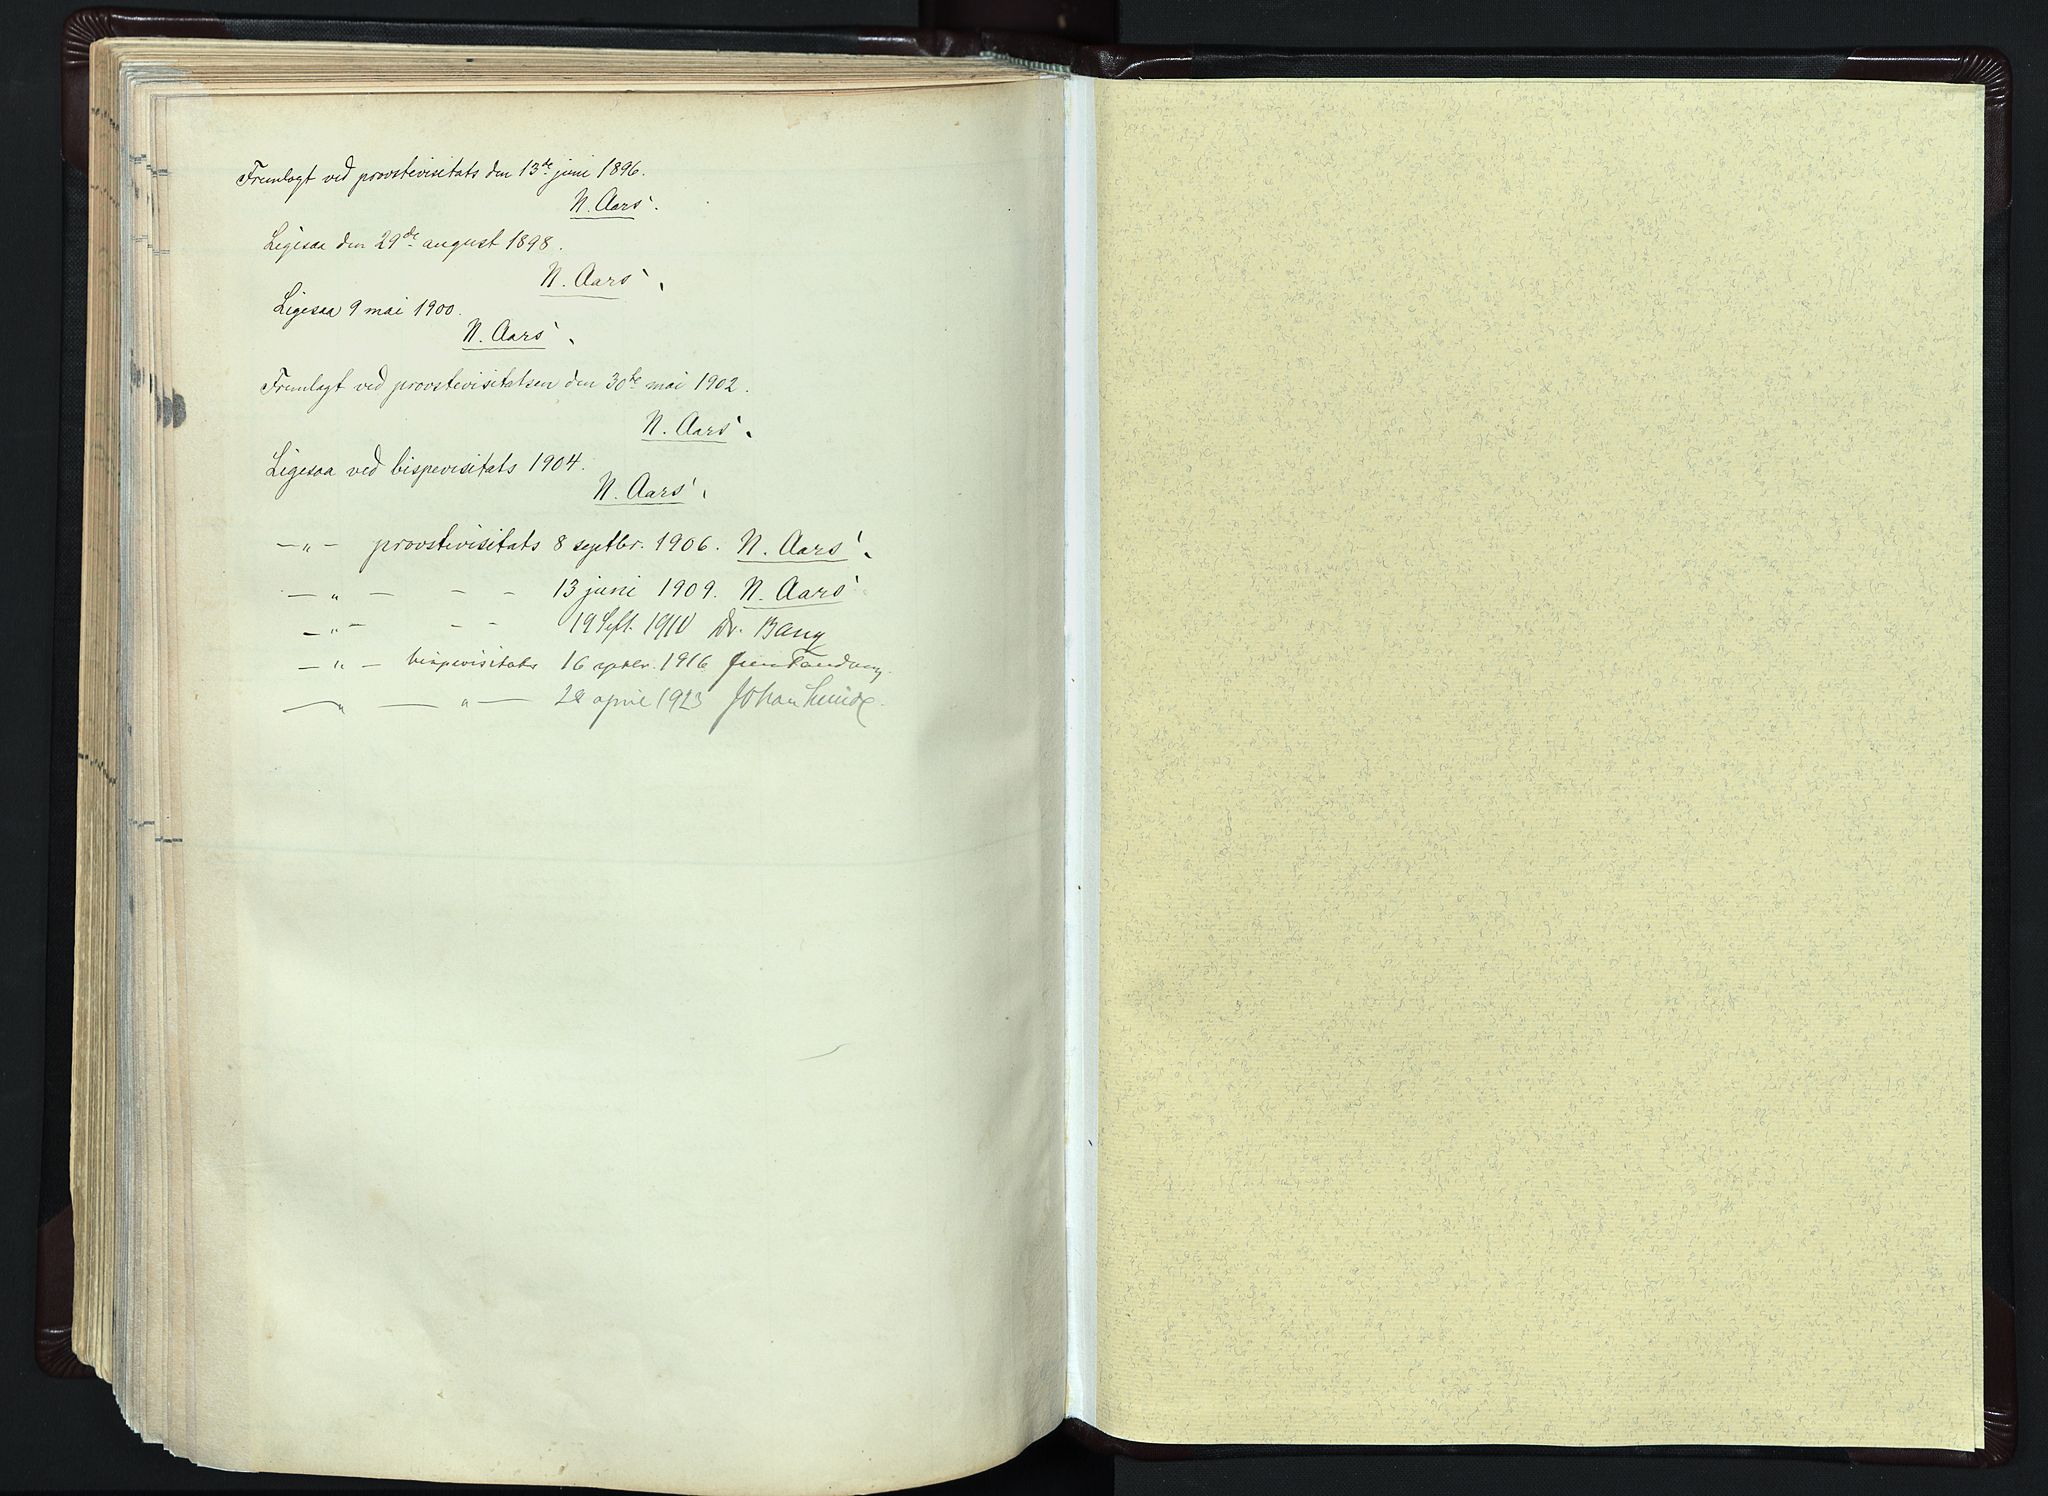 Fremlagt ved provstevisitats den 13de juni 1896.
N. Aars.
Ligesaa den 29de august 1898.
N. Aars.
Ligesaa 9 mai 1900.
N. Aars.
Fremlagt ved provstevisitatsen den 30te mai 1902.
N. Aars.
Ligesaa ved bispevisitats 1904.
N. Aars.
— „ — provstevisitats 8 septbr. 1906. N. Aars.
— „ — — — 13 juni 1909. N. Aars
— „ — — — 19 Sept. 1910 Dr. Bang
— „ — bispevisitats 16 septbr. 1916 Jens Tandberg.
— „ — „ — 28 april 1923 Johan Lunde.